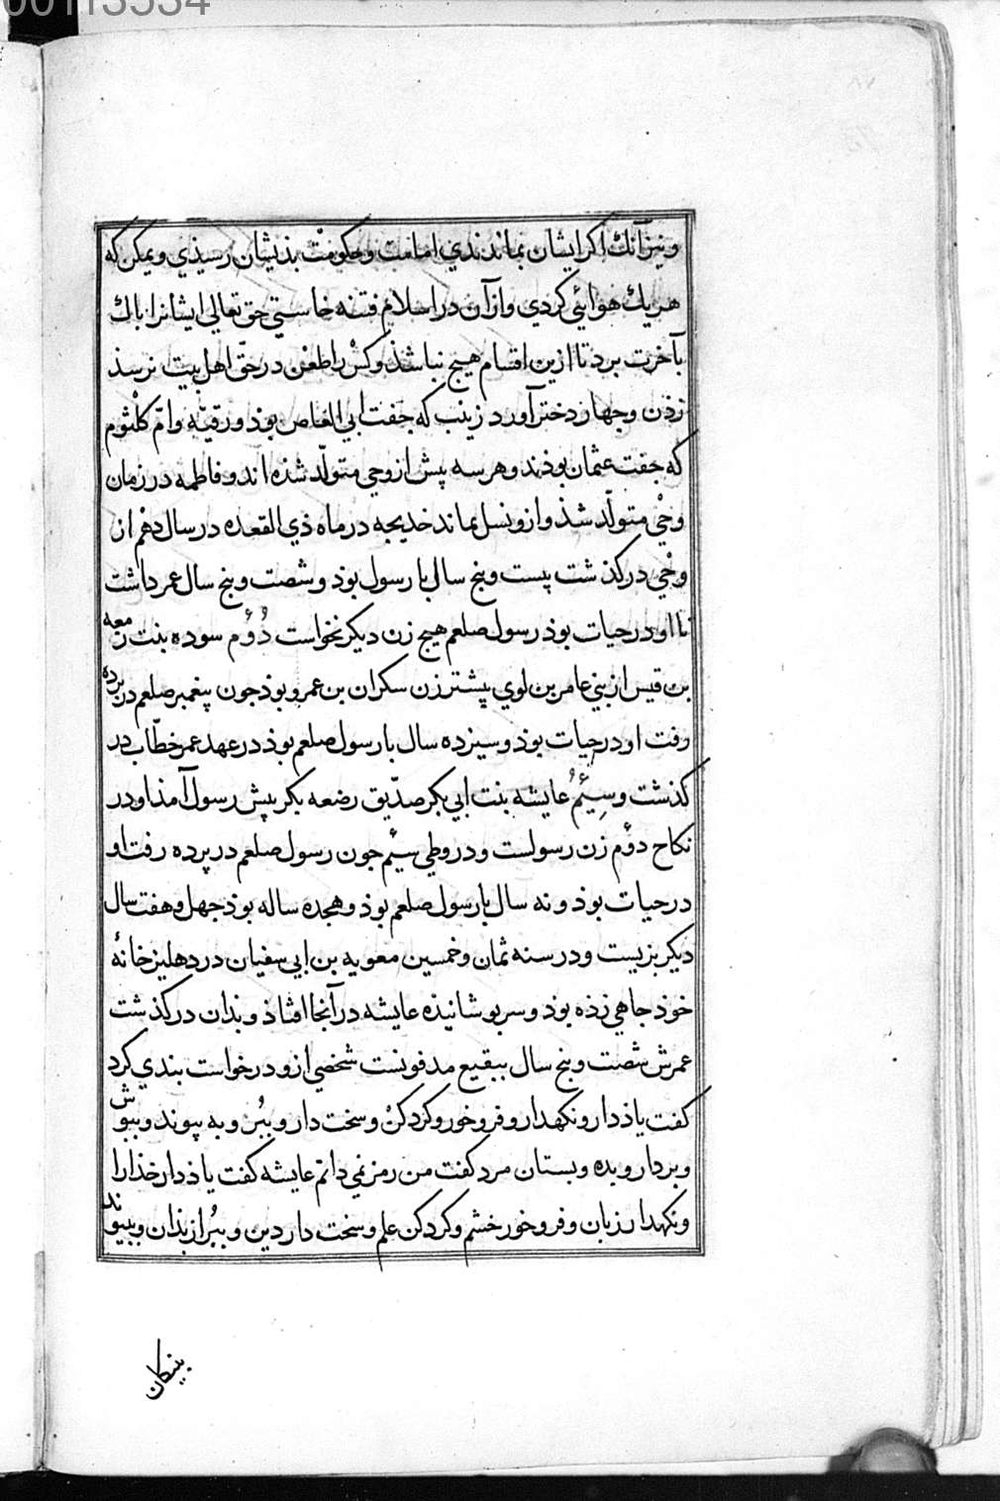 00113534
ونیز آنك اکر ایشان بماندندي امامت وحکومت بذیشان رسیذي ویمکن که
هریك هوائي کردي وازآن در اسلام فتنه خاستي حق تعالي ایشانرا باك
بآخرت برد تا ازین اقسام هیچ نباشذ وکس را طعن در حق اهل بیت نرسذ
زذن وجهار دختر آورد زینب که جفت ابي العاص بوذ ورقیه وامّ کلثوم
که جفت عثمان بوذند وهر سه پیش از وحي متولّد شذه اند وفاطمه در زمان
وحْي متولّد شذ وازو نسل بماند خدیجه در ماه ذي القعده در سال دهم از
وحْي درکذشت پیست وبنج سال با رسول بوذ وشصت وبنج سال عمر داشت
تا او در حیات بوذ رسول صلعم هیچ زن دیکر نخواست دُوُم سوده بنت زمعه
بن قیس از بني عامر بن لوي پیشتر زن سکران بن عمرو بوذ جون پیغمبر صلعم در برده
رفت او در حیات بوذ وسیزده سال با رسول صلعم بوذ در عهد عمر خطّاب در
کذشت وسِیُمُ عایشه بنت ابي بکر صدّیق رضعه بکر پیش رسول آمذ او در
نکاح دوُم زن رسولست ودر وطي سیُم جون رسول صلعم در پرده رفت او
در حیات بوذ ونه سال با رسول صلعم بوذ وهجده ساله بوذ جهل وهفت سال
دیکر بزیست ودر سنه ثمان وخمسین معویه بن ابي سفیان در دهلیز خانهٔ
خوذ جاهي زذه بوذ وسربوشانیذه عایشه در آنجا افتاذ وبذان درکذشت
عمرش شصت وبنج سال ببقیع مدفونست شخصي ازو درخواست بندي کرد
کفت یاذ دار ونکهدار وفروخور وکرد کن وسخت دار وببُر وبه پیوند وببوش
وبردار وبده وبستان مرد کفت من رمز نمي دانم عایشه کفت یاذ دار خذارا
ونکهدار زبان وفروخور خشم وکرد کن علم وسخت دار دین وببُر از بذان وبپیوند
بنیکان